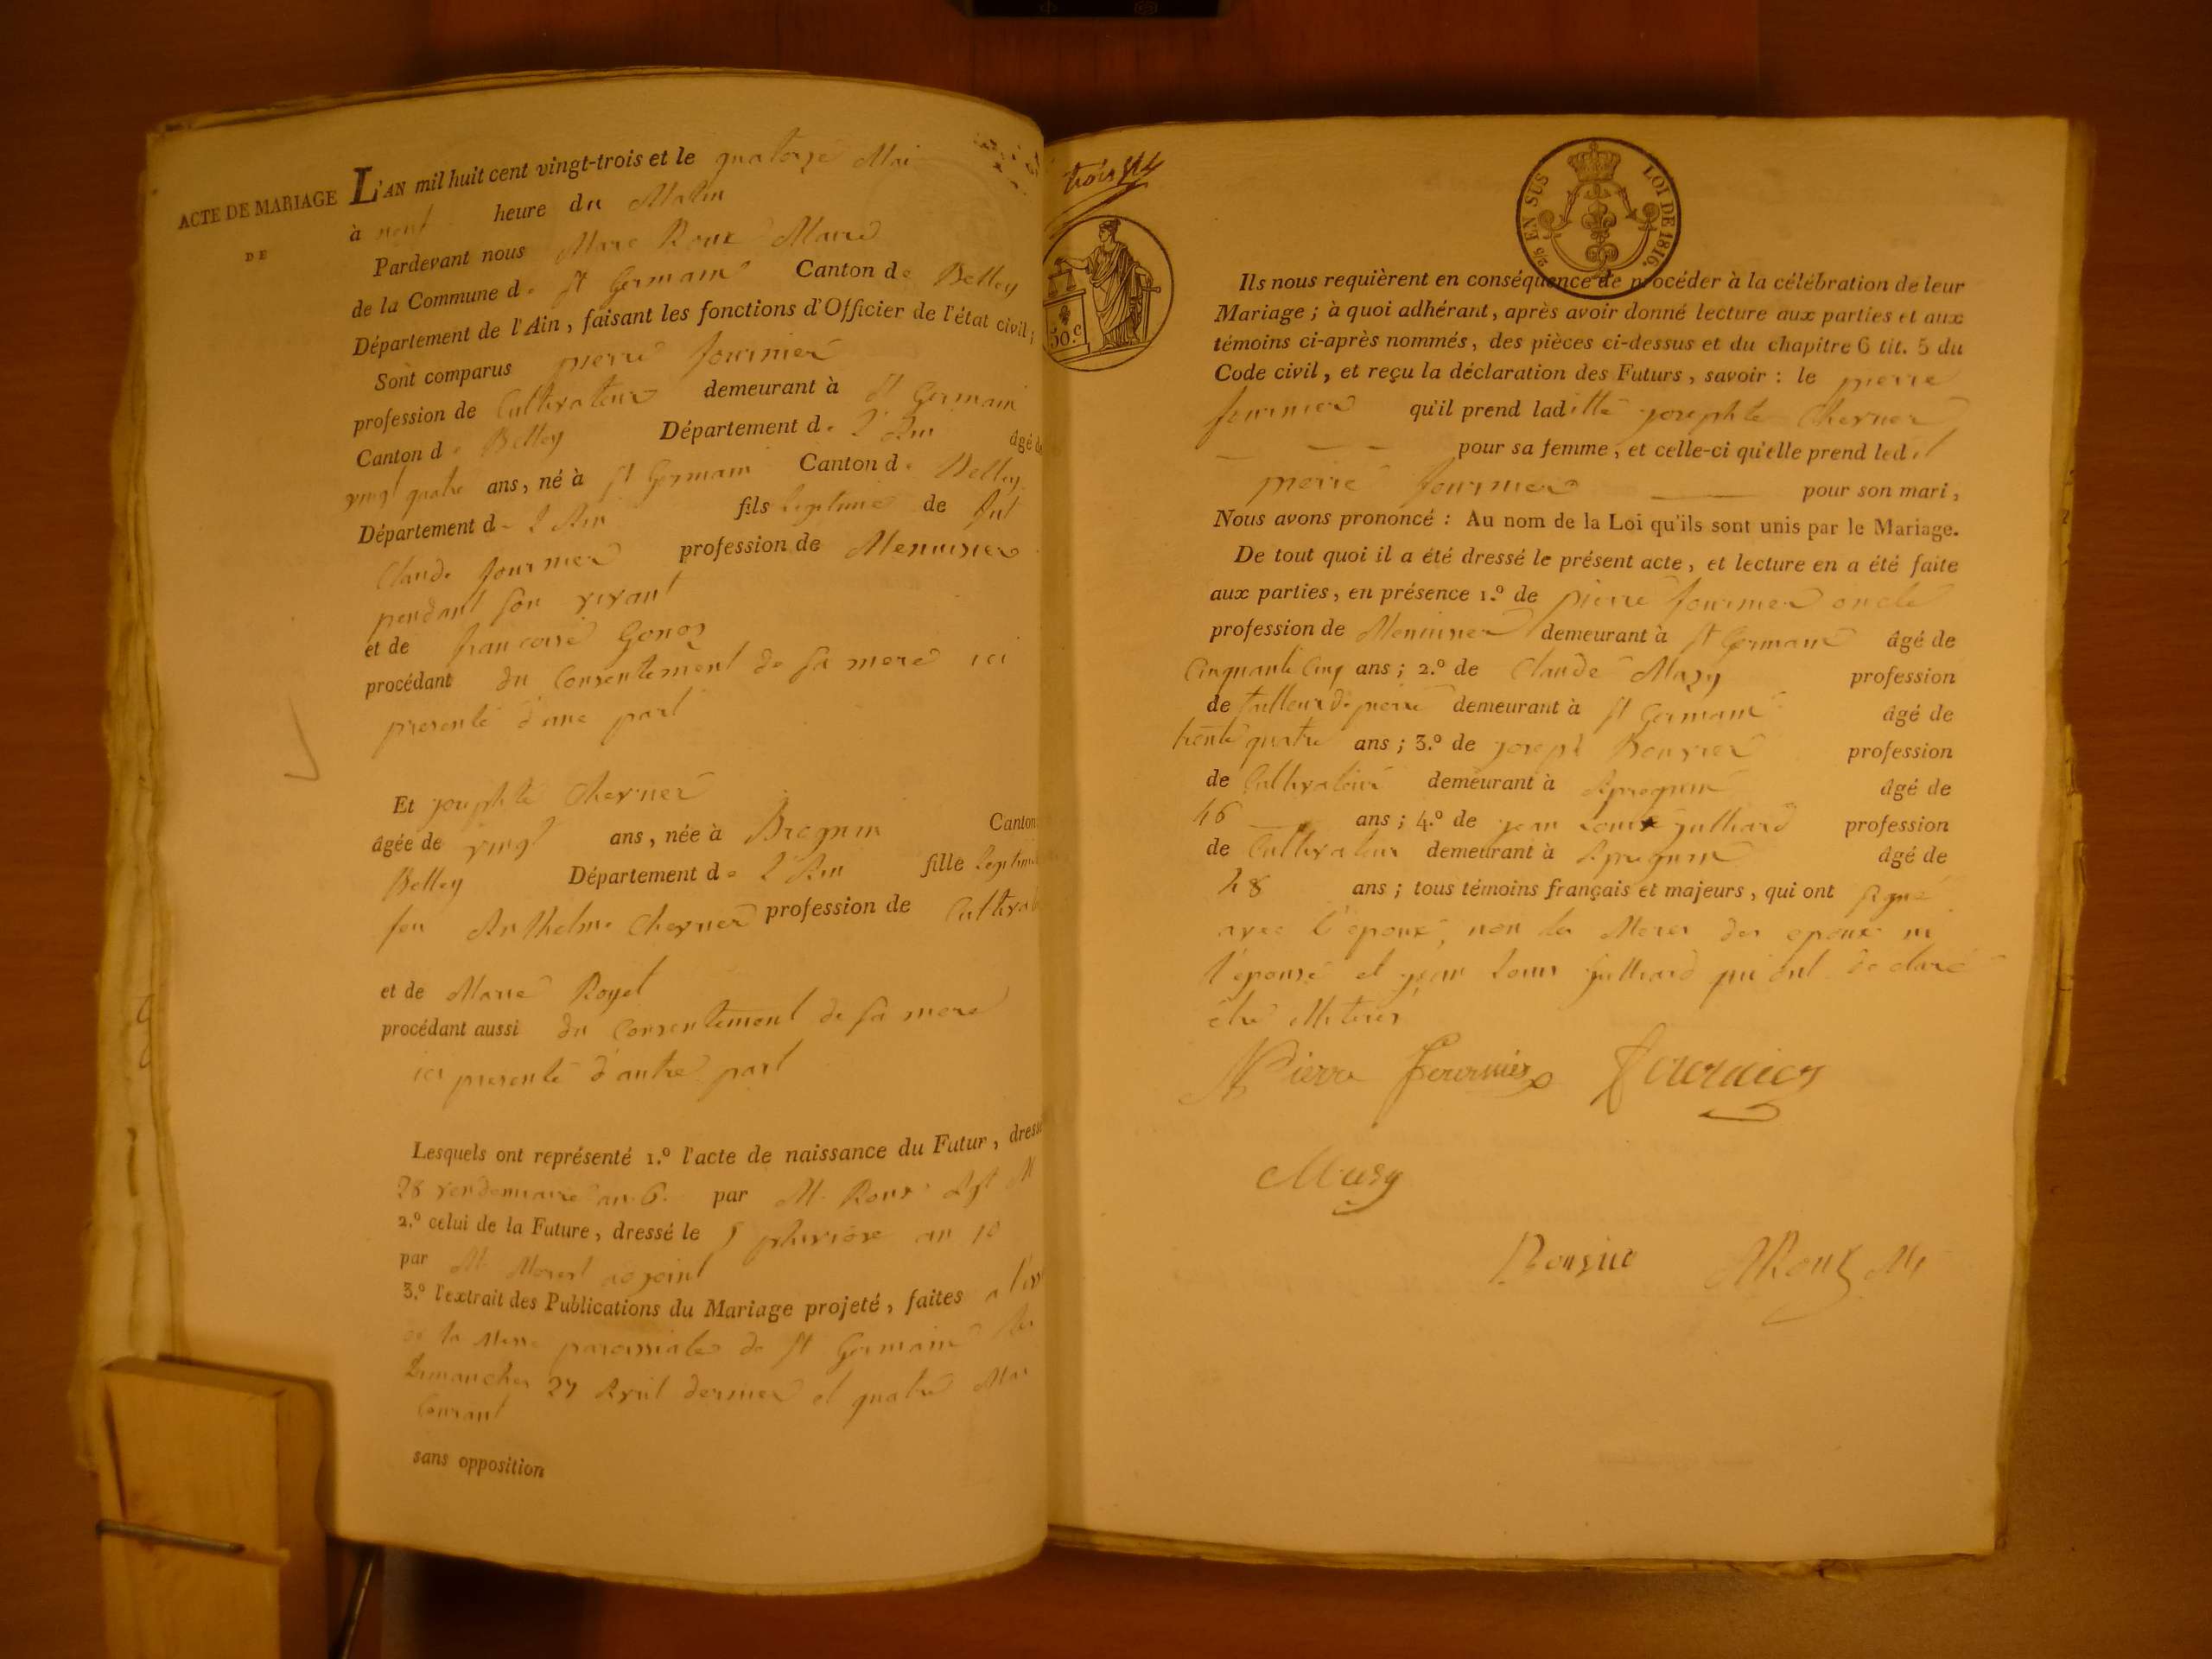 ACTE DE MARIAGE
DE
L'AN mil huit cent vingt-trois et le quatorze Mai
à neuf heure du Matin
Pardevant nous Marc Roux Maire
de la Commune de St Germain Canton de Belley
Département de l'Ain, faisant les fonctions d'Officier de l'état civil;
Sont comparus pierre fournier
profession de Cultivateur demeurant à St Germain
Canton de Belley Département de l'Ain âgé de
vingt quatre ans, né à St Germain Canton de Belley
Département de l'Ain fils legitime de fut
Claude fournier profession de Menuisier
pendant son vivant
et de francoise Gonos
procédant du Consentement de sa mere ici
presente d'une part
Et josephte Chervier
âgée de vingt ans, née à Bregnin Canton
Belley Département de l'Ain fille legitime
feu Anthelme Chervier profession de Cultivat
et de Marie Royet
procédant aussi du Consentement de sa mere
ici presente d'autre part
Lesquels ont représenté 1.º l'acte de naissance du Futur, dressé
28 vendemiaire an 6. par M. Roux
2.º celui de la Future, dressé le 5 pluviose an 10
par M. Morel adjoint
3.º l'extrait des Publications du Mariage projeté, faites a
de la Messe paroissiale de St Germain les
Dimanches 27 Avril dernier et quatre Mai
Courant
sans opposition
trois
50.c
2/5 EN SUS LOI DE 1816.
Ils nous requièrent en conséquence de procéder à la célébration de leur
Mariage; à quoi adhérant, après avoir donné lecture aux parties et aux
témoins ci-après nommés, des pièces ci-dessus et du chapitre 6 tit. 5 du
Code civil, et reçu la déclaration des Futurs, savoir: le pierre
fournier qu'il prend laditte josephte Chervier
pour sa femme, et celle-ci qu'elle prend ledit
pierre fournier pour son mari,
Nous avons prononcé: Au nom de la Loi qu'ils sont unis par le Mariage.
De tout quoi il a été dressé le présent acte, et lecture en a été faite
aux parties, en présence 1.º de pierre fournier oncle
profession de Menuisier demeurant à St Germain âgé de
Cinquante Cinq ans; 2.º de Claude Mazy profession
de tailleur de pierre demeurant à St Germain âgé de
trente quatre ans; 3.º de joseph Bouvier profession
de Cultivateur demeurant à Apregnin âgé de
46 ans; 4.º de jean Louis julliard profession
de Cultivateur demeurant à Apregnin âgé de
48 ans; tous témoins français et majeurs, qui ont signé
avec l'epoux, non les Meres des epoux ni
l'epouse et jean Louis julliard qui ont declaré
etre illiteres
Pierre fournier fournier
Mazy
Bouvier MRoux Mr